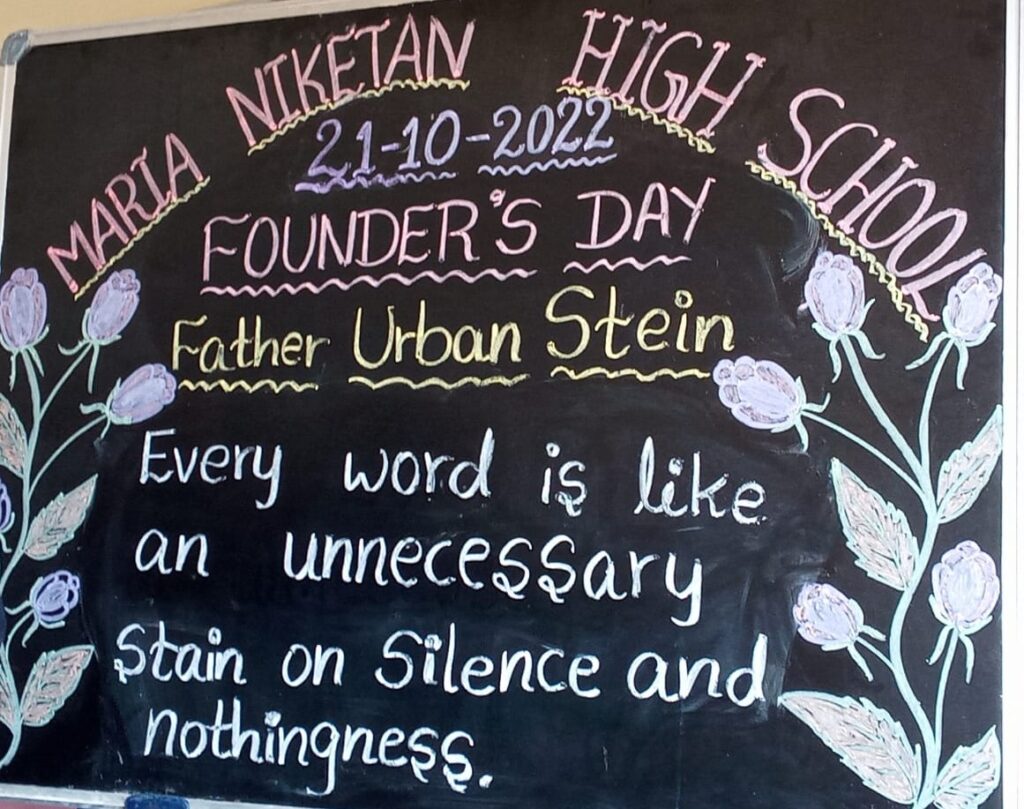 MARIA NIKETAN HIGH SCHOOL
21-10-2022
FOUNDER'S DAY
Father Urban Stein
Every word is like
an unnecessary
Stain on Silence and
nothingness.